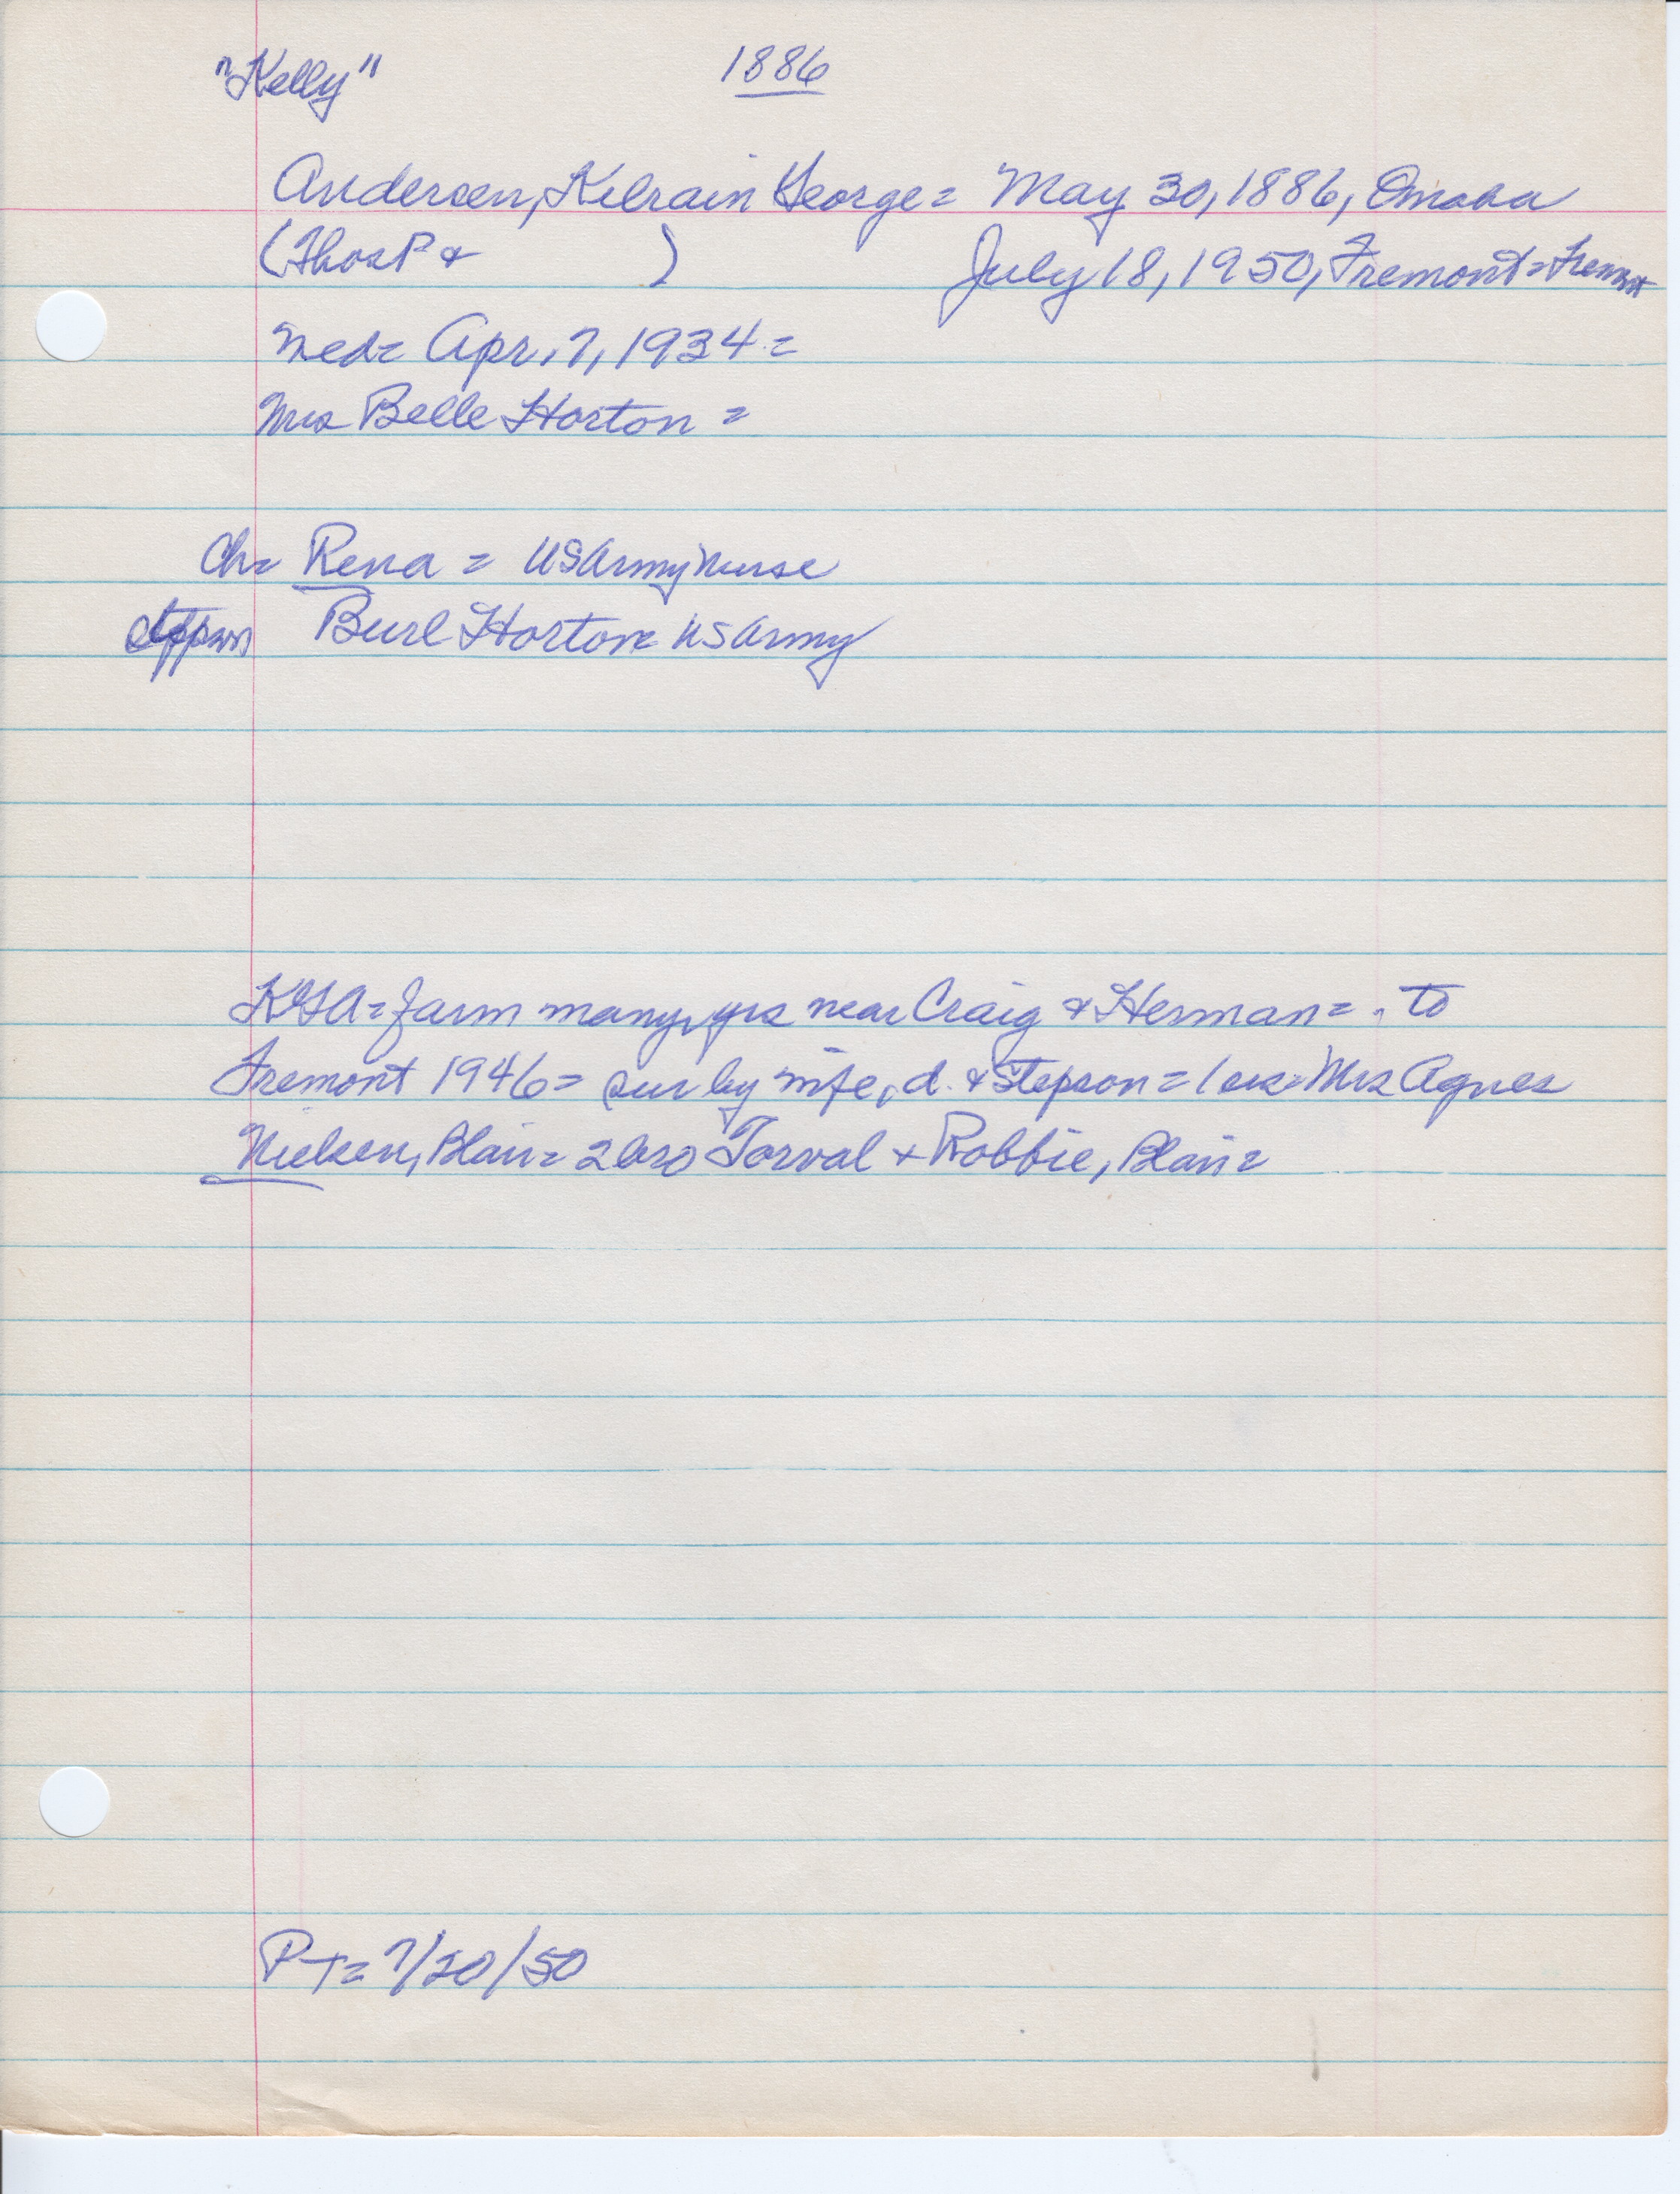 "Kelly" 1886
Andersen, Kilrain George = May 30, 1886, Omaha
(Thos P & ) July 18, 1950, Fremont = Fremont
Wed = Apr. 7, 1934 =
Mrs Belle Horton =
Ch = Rena = US Army Nurse
Stepson Burl Horton = US Army
KGA = farm many yrs near Craig & Herman = . to
Fremont 1946 = sur by wife, d. & stepson = 1 sis = Mrs Agnes
Nielsen, Blair = 2 bro Torval + Robbie, Blair =
PT = 7/20/50